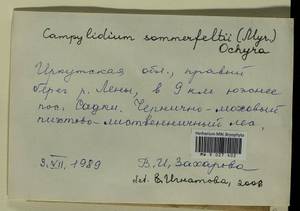 Campylidium sommerfeltii (Myr.)
Ochyra
Иркутская обл., правый
берег р. Лены, в 9 км южнее
пос. Садки. Чернично-моховый
пихтово-лиственничный лес,
3.VII.1989 В.И. Захарова
det. Е. Игнатова, 2008